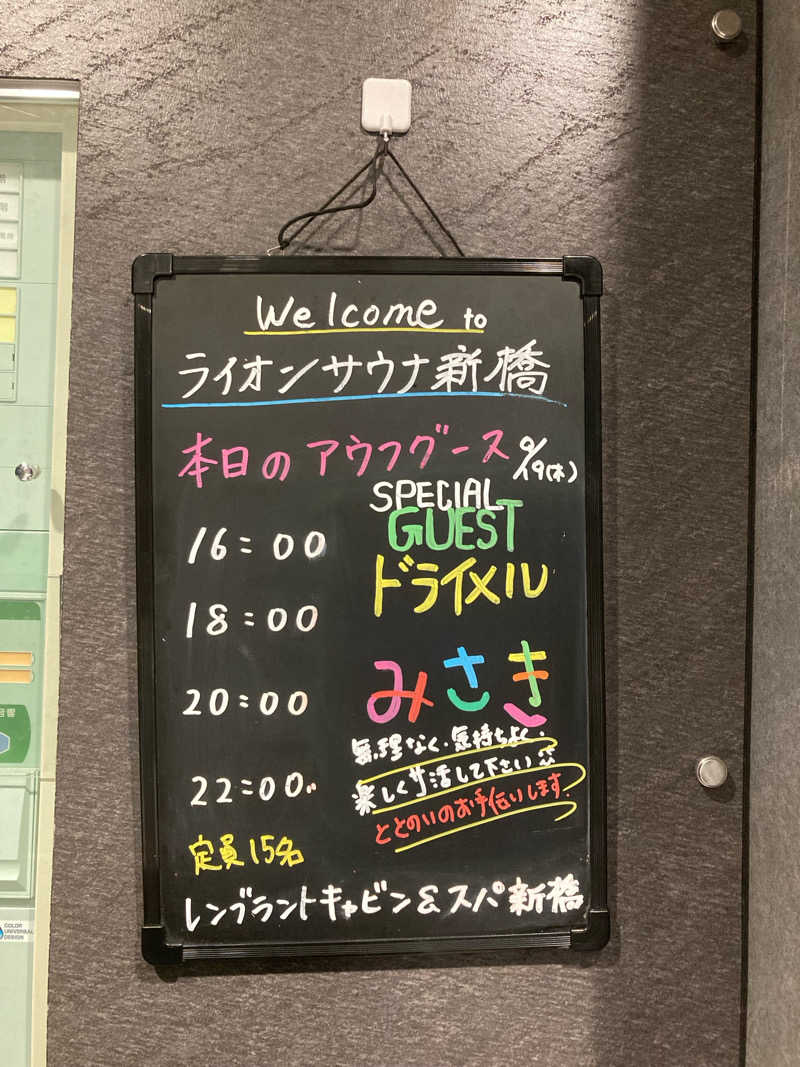 Welcome to
ライオンサウナ新橋
本日のアウフグース 9/19(木)
SPECIAL
GUEST
ドライメル
16:00
18:00
20:00
22:00
みさき
無理なく、気持ちよく、
楽しくサ活して下さい
ととのいのお手伝いします。
定員15名
レンブラントキャビン&スパ新橋
COLOR
UNIVERSAL
DESIGN